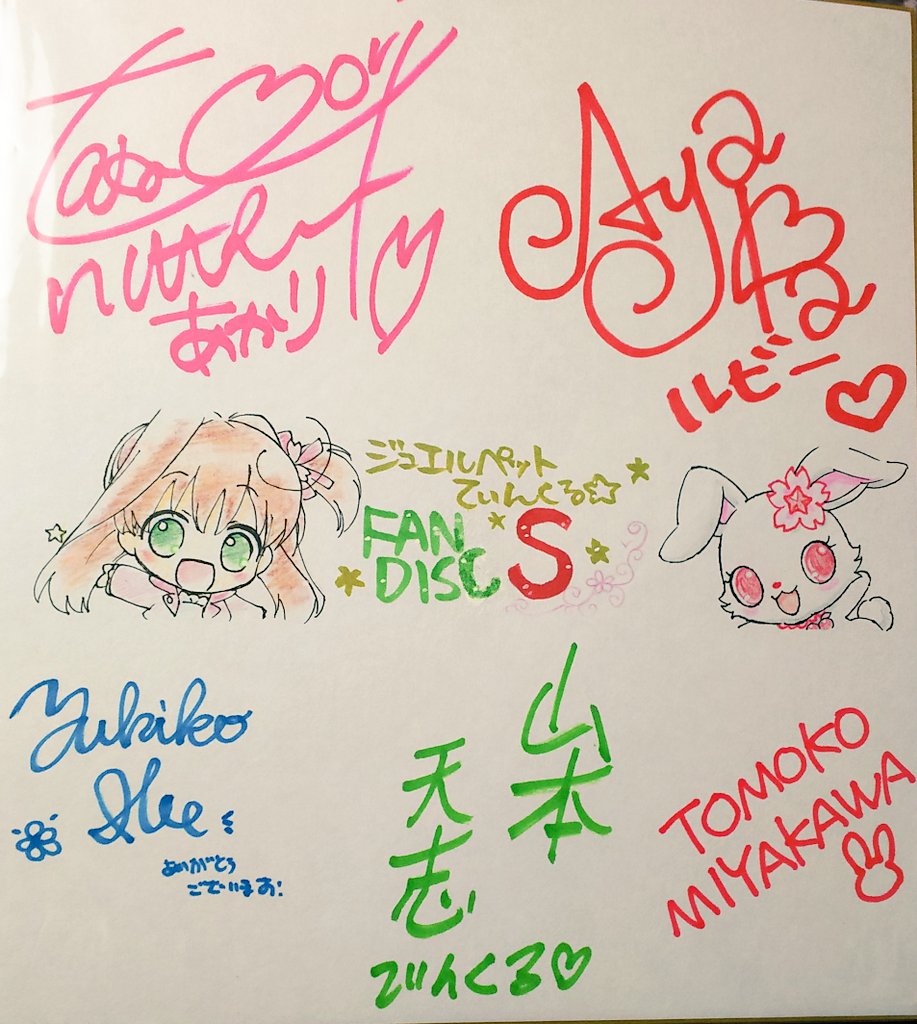 あかり
Aya
ルビー
ジュエルペット
てぃんくる☆
FAN
DISC S
Yukiko
ありがとう
ございます!
山本
天志
てぃんくる♡
TOMOKO
MIYAKAWA